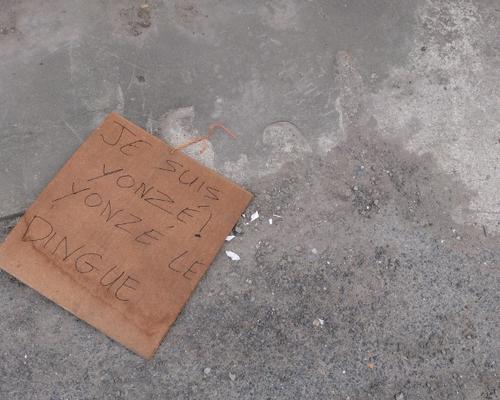 JE SUIS
YONZÉ!
YONZE LE
DINGUE